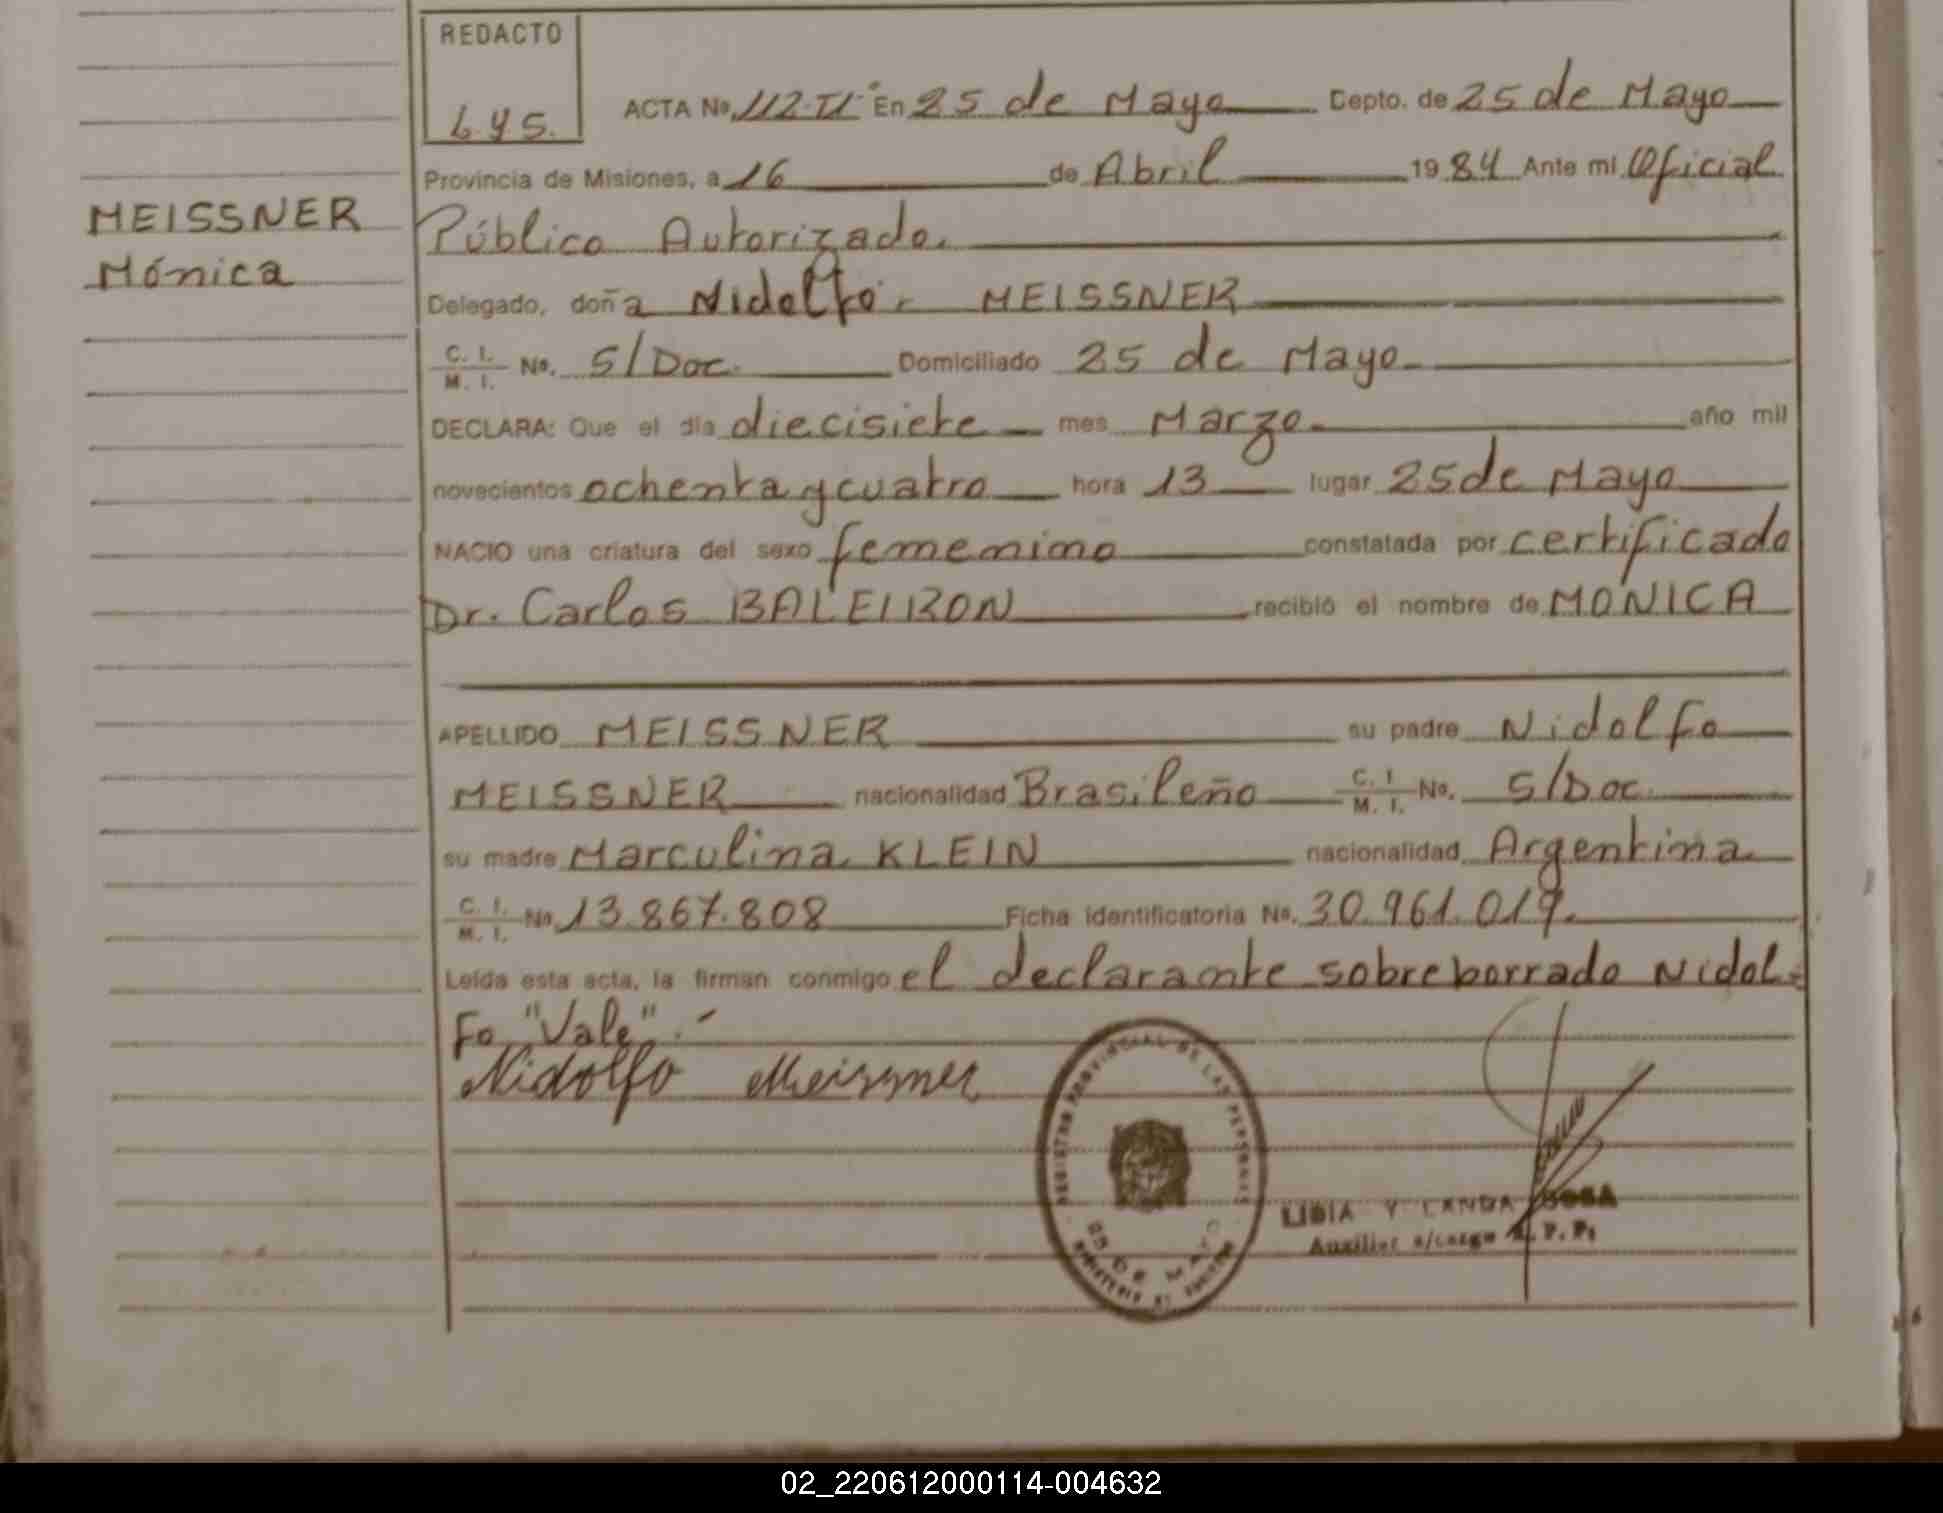 REDACTO
Lys.
ACTA No. 112-TI° En 25 de Mayo Depto. de 25 de Mayo
Provincia de Misiones, a 16 de Abril 1984 Ante mi Oficial
MEISSNER
Público Autorizado.
Mónica
Delegado, doña Nidolfo MEISSNER
C. I. / M. I. No. S/Doc. Domiciliado 25 de Mayo
DECLARA: Que el día diecisiete mes Marzo año mil
novecientos ochenta y cuatro hora 13 lugar 25 de Mayo
NACIO una criatura del sexo femenino constatada por certificado
Dr. Carlos BALEIRON recibió el nombre de MONICA
APELLIDO MEISSNER su padre Nidolfo
MEISSNER nacionalidad Brasileño C. I. / M. I. No. S/Doc.
su madre Marculina KLEIN nacionalidad Argentina
C. I. / M. I. No. 13.867.808 Ficha identificatoria No. 30.961.019.
Leída esta acta, la firman conmigo el declarante sobreborrado Nidol=
Fo "Vale".-
Nidolfo Meissner
REGISTRO PROVINCIAL DE LAS PERSONAS
25 DE MAYO
LIDIA Y LANDA SOSA
Auxiliar a/cargo R.P.P.
02_220612000114-004632